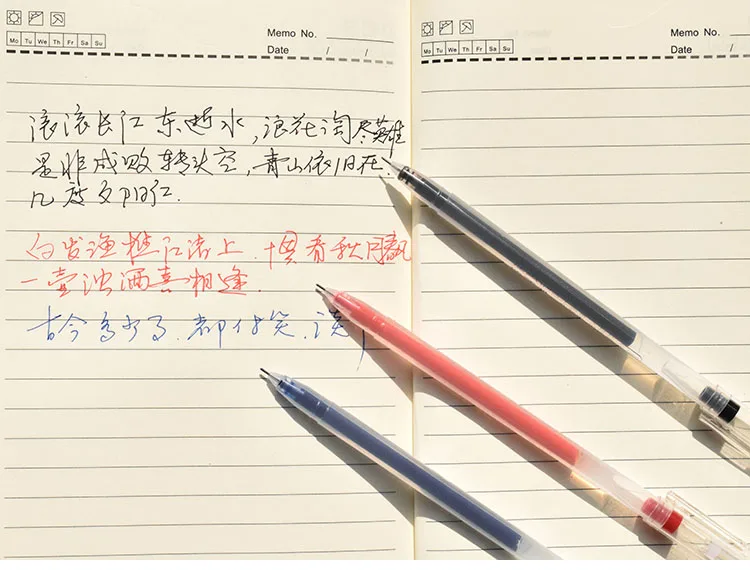 Memo No.
Mo Tu We Th Fr Sa Su
Date / /
滚滚长江东逝水,浪花淘尽英雄
是非成败转头空,青山依旧在.
几度夕阳红.
白发渔樵江渚上.惯看秋月春风
一壶浊酒喜相逢.
古今多少事.都付笑.谈
Memo No.
Mo Tu We Th Fr Sa Su
Date /